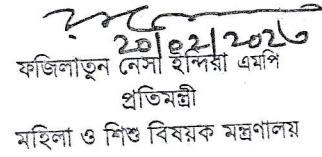 20/02/2023
ফজিলাতুন নেসা ইন্দিরা এমপি
প্রতিমন্ত্রী
মহিলা ও শিশু বিষয়ক মন্ত্রণালয়